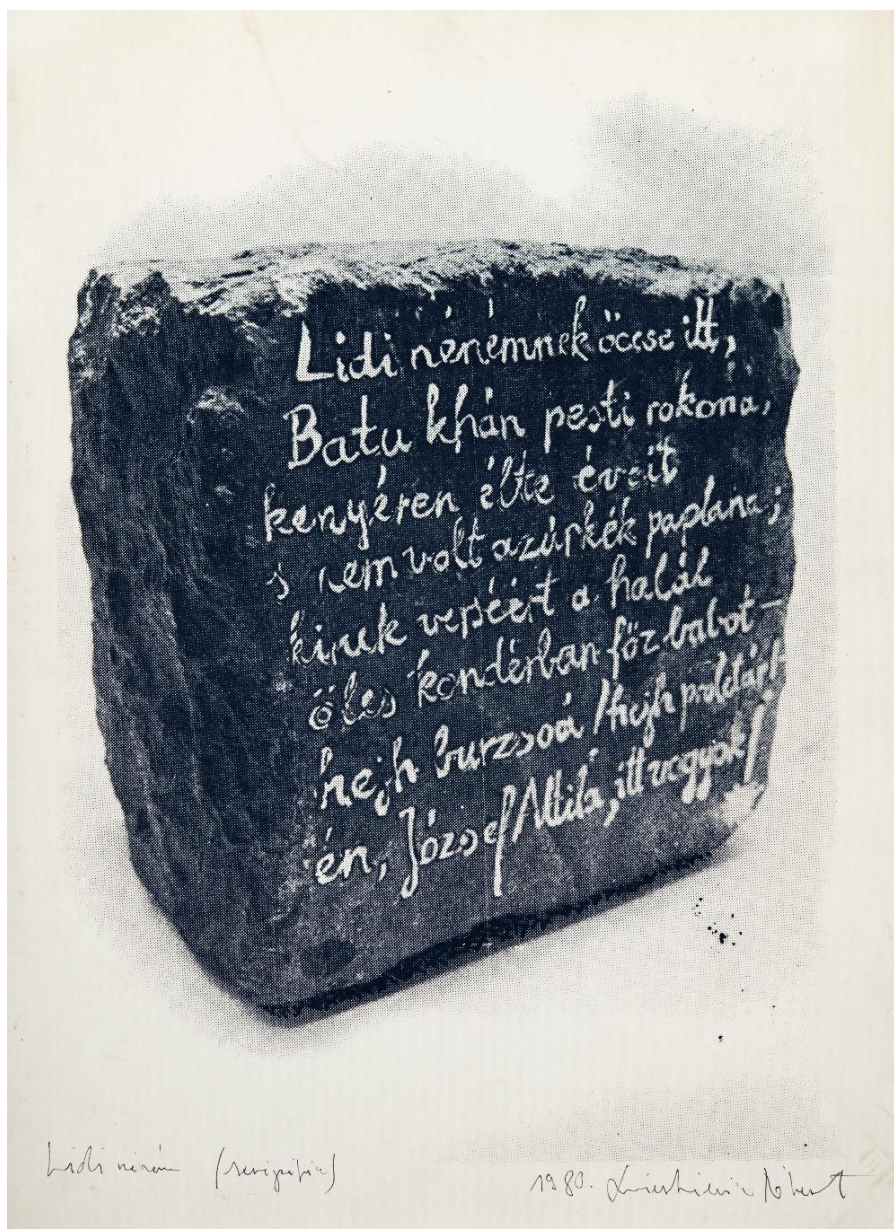 Lidi nénémnek öccse itt,
Batu khán pesti rokona,
kenyéren élte éveit
s nem volt azúrkék paplana;
kinek verséért a halál
öles kondérban főz babot –
hejh burzsoá! hejh proletár!
én, József Attila, itt vagyok!
Lidi néném (szerigráfia)
1980.